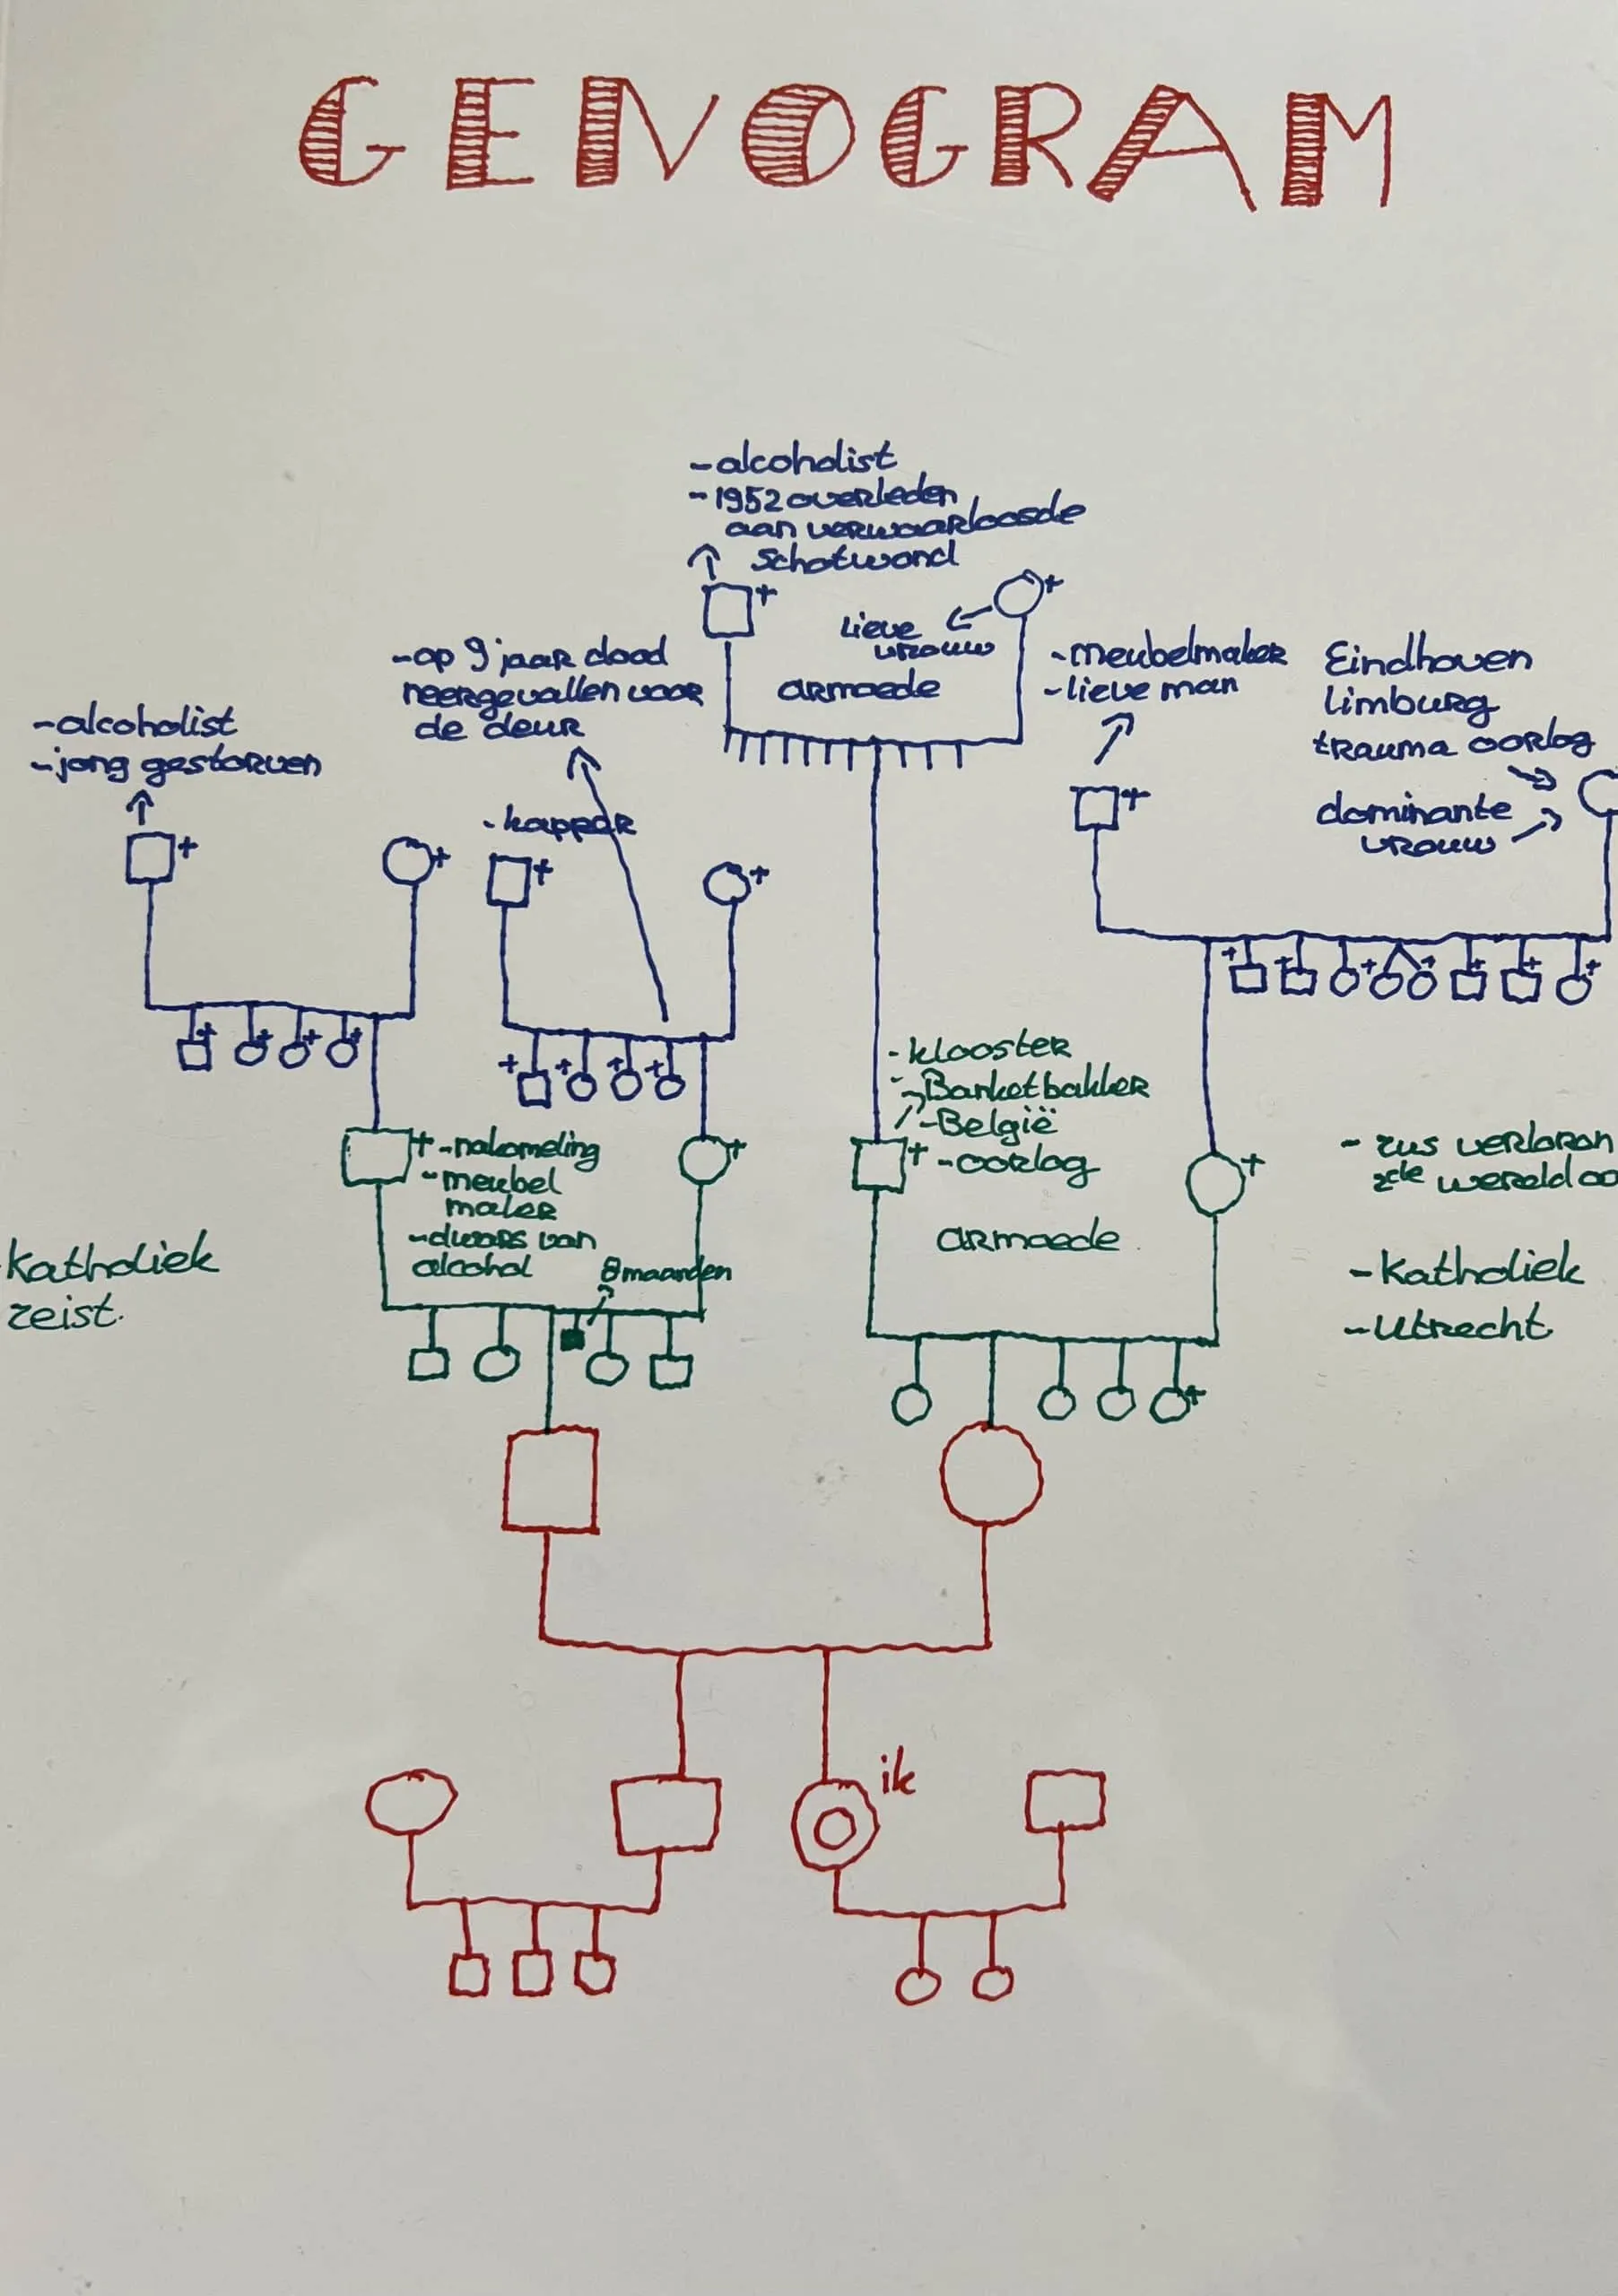 GENOGRAM
-alcoholist
-1952 overleden
aan verwaarloosde
schotwond
lieve
vrouw
armoede
-op 9 jaar dood
neergevallen voor
de deur
-meubelmaker
-lieve man
Eindhoven
limburg
trauma oorlog
dominante
vrouw
-alcoholist
-jong gestorven
-kapper
-klooster
-Banketbakker
-België
-oorlog
armoede
-nakomeling
-meubel
maker
-dwars van
alcohol
8 maanden
Katholiek
zeist.
- zus verloren
2de wereld oo
-Katholiek
-Utrecht
ik